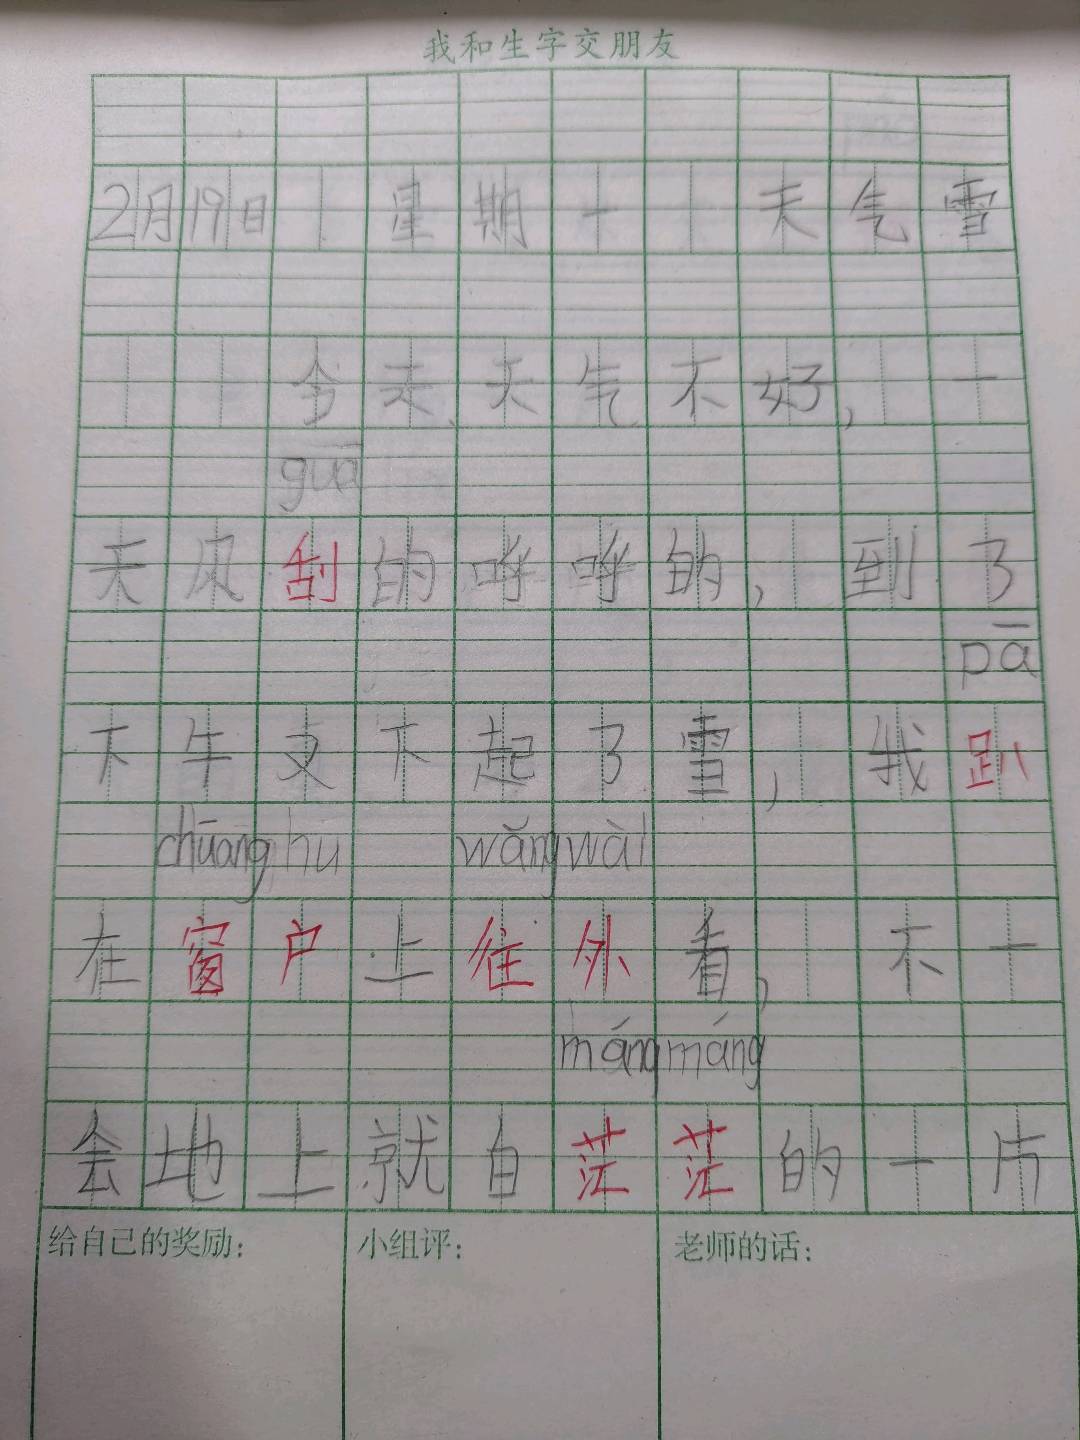 我和生字交朋友
2月19日 星期一 天气雪
今天天气不好, 一
guā
天风刮的呼呼的, 到了
pā
下午又下起了雪, 我趴
chuāng hu wǎng wài
在窗户上往外看, 不一
máng máng
会地上就白茫茫的一片
给自己的奖励: 小组评: 老师的话: